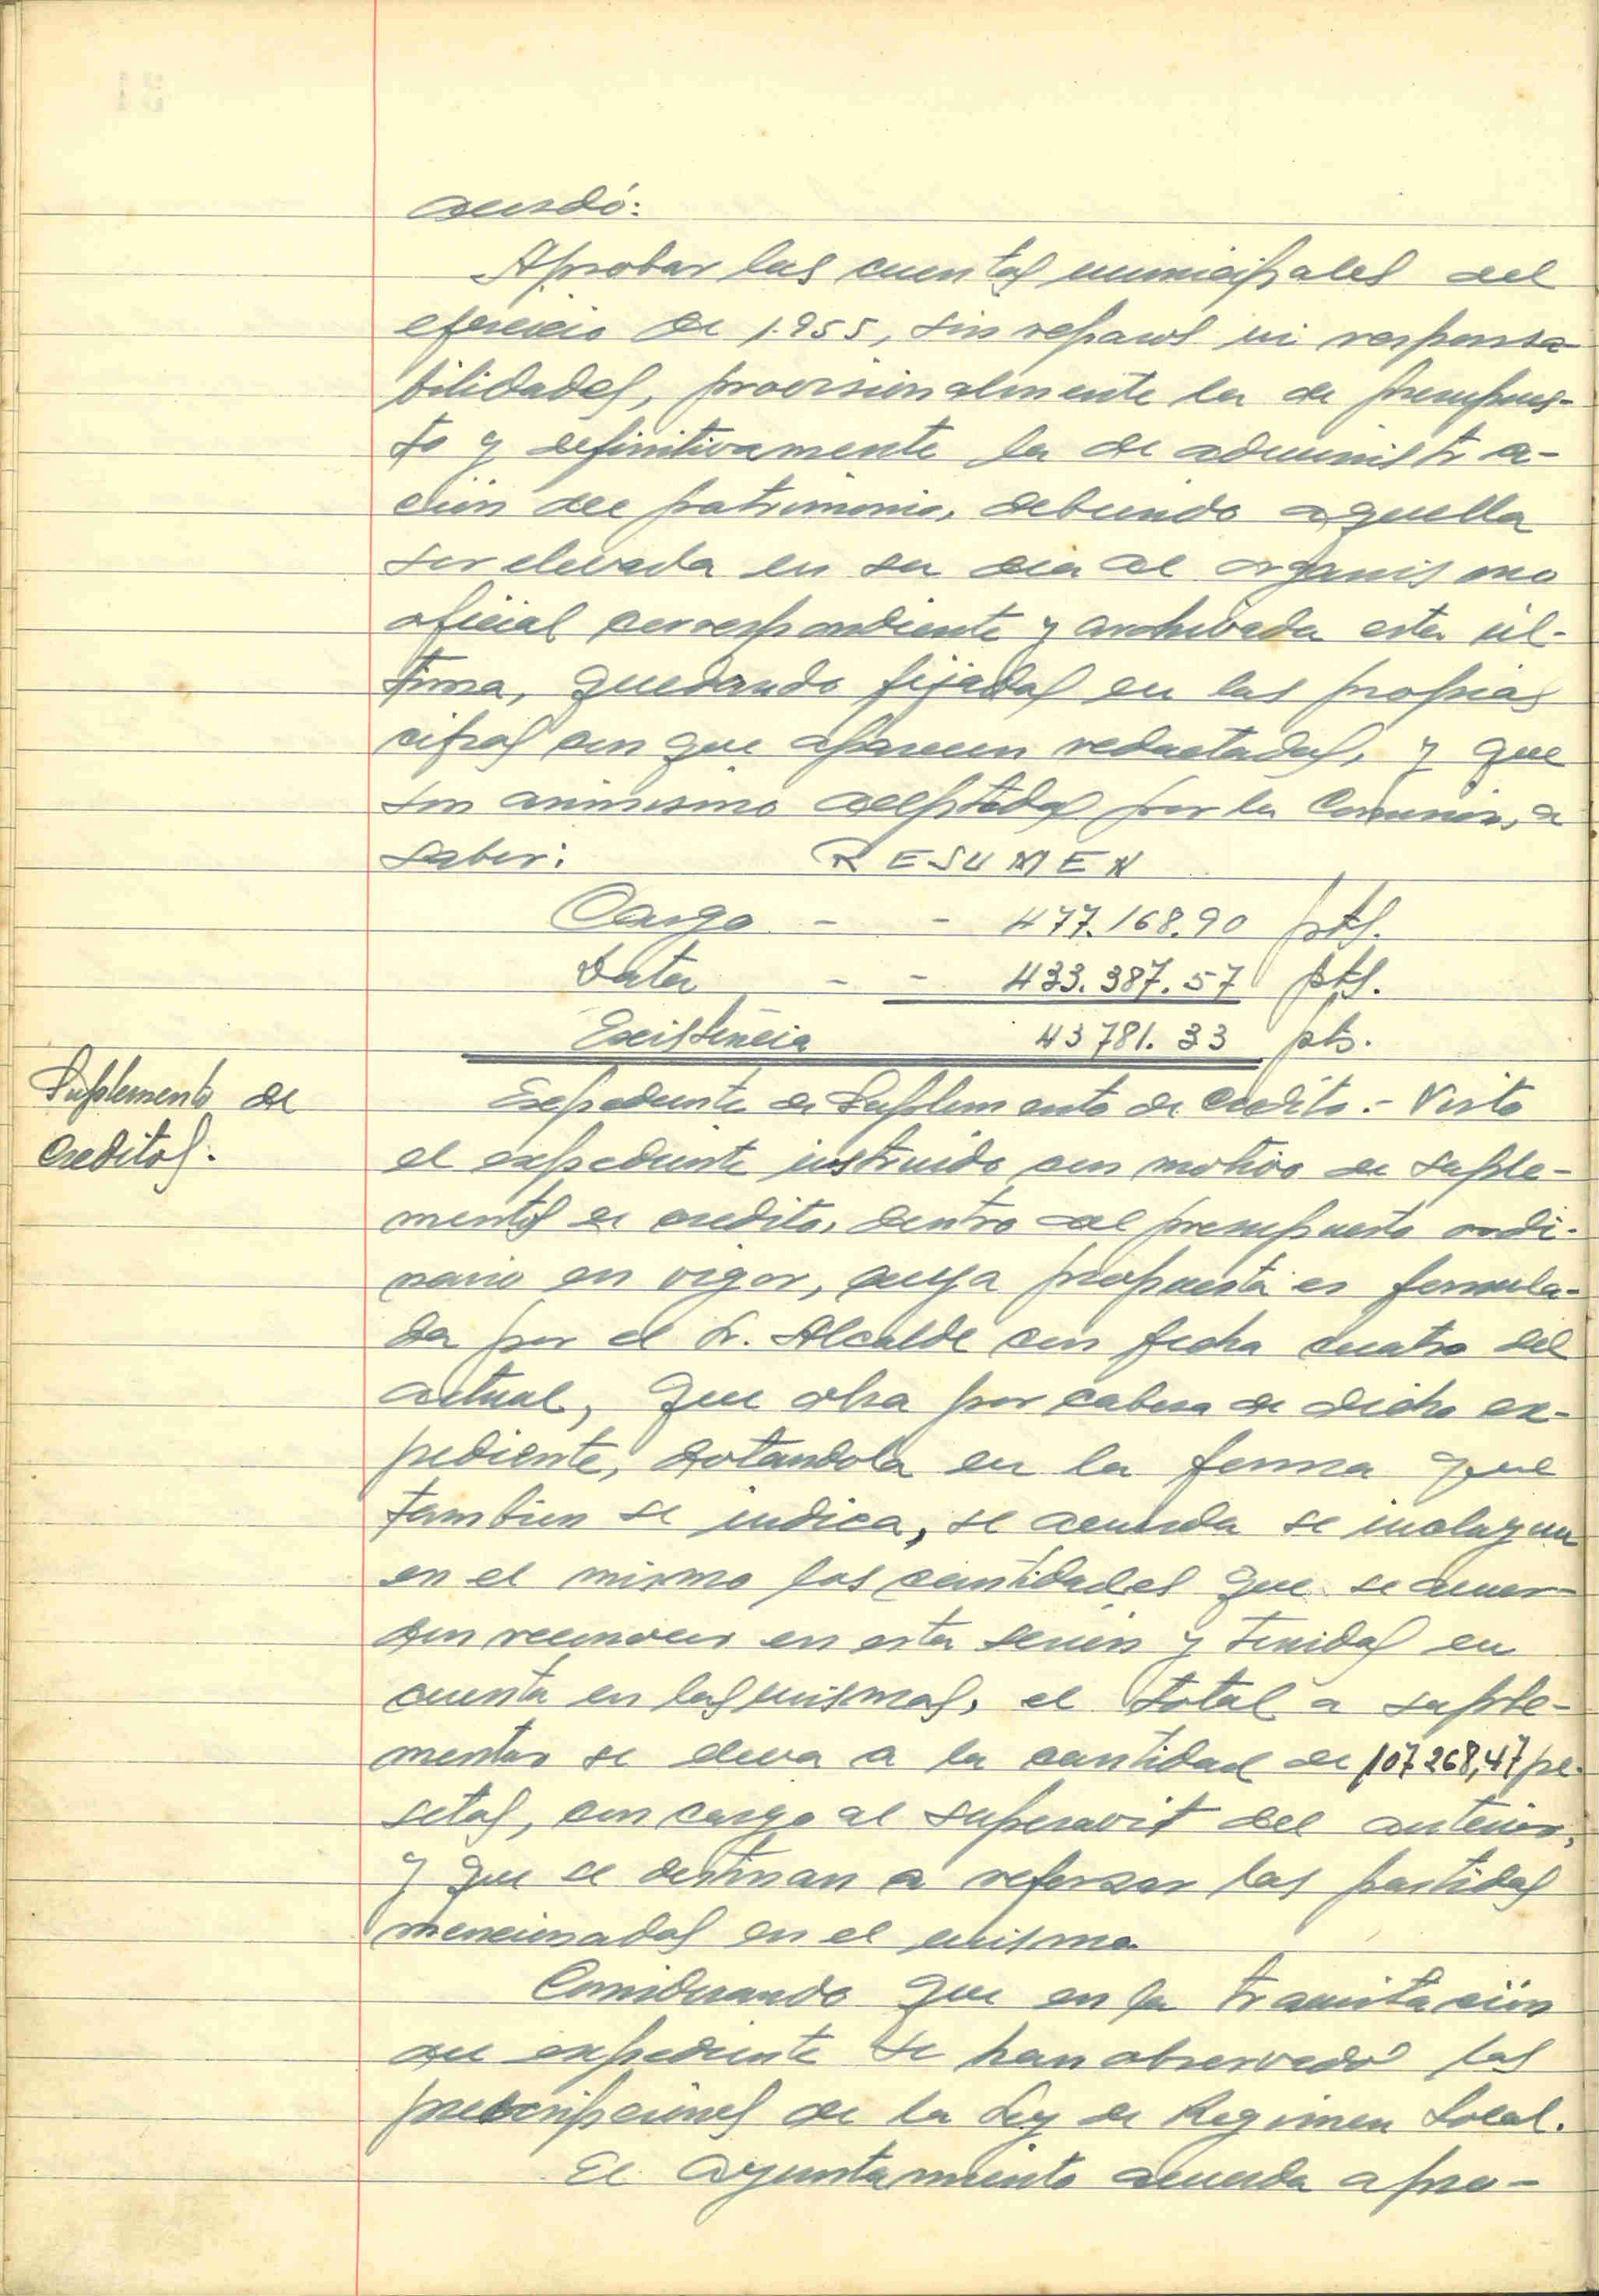 acordó:
Aprobar las cuentas municipales del
ejercicio de 1.955, sin reparos ni responsa
bilidades, provisionalmente la de presupues-
to y definitivamente la de administra-
ción del patrimonio, debiendo aquella
ser elevada en su dia al organismo
oficial correspondiente y archivada esta úl-
tima, quedando fijadas en las propias
cifras con que aparecen redactadas, y que
son asimismo aceptadas por la Comision, a
saber: RESUMEN
Cargo - - 477.168.90 pts.
Data - - 433.387.57 pts.
Existencia 43781.33 pts.
Suplemento de
Creditos.
Expediente de Suplemento de Credito.- Visto
el expediente instruido con motivo de suple-
mentos de credito, dentro del presupuesto ordi-
nario en vigor, cuya propuesta es formula-
da por el Sr. Alcalde con fecha cuatro del
actual, que obra por cabeza de dicho ex-
pediente, dotandola en la forma que
tambien se indica, se acuerda se incluyan
en el mismo las cantidades que se acuer-
dan reconocer en esta sesión y tenidas en
cuenta en las mismas, el total a suple-
mentar se eleva a la cantidad de 107268,47 pe-
setas, con cargo al superavit del anterior,
y que se destinan a reforzar las partidas
mencionadas en el mismo
Considerando que en la tramitación
del expediente se han observado las
prescripciones de la Ley de Regimen Local.
El Ayuntamiento acuerda apro-